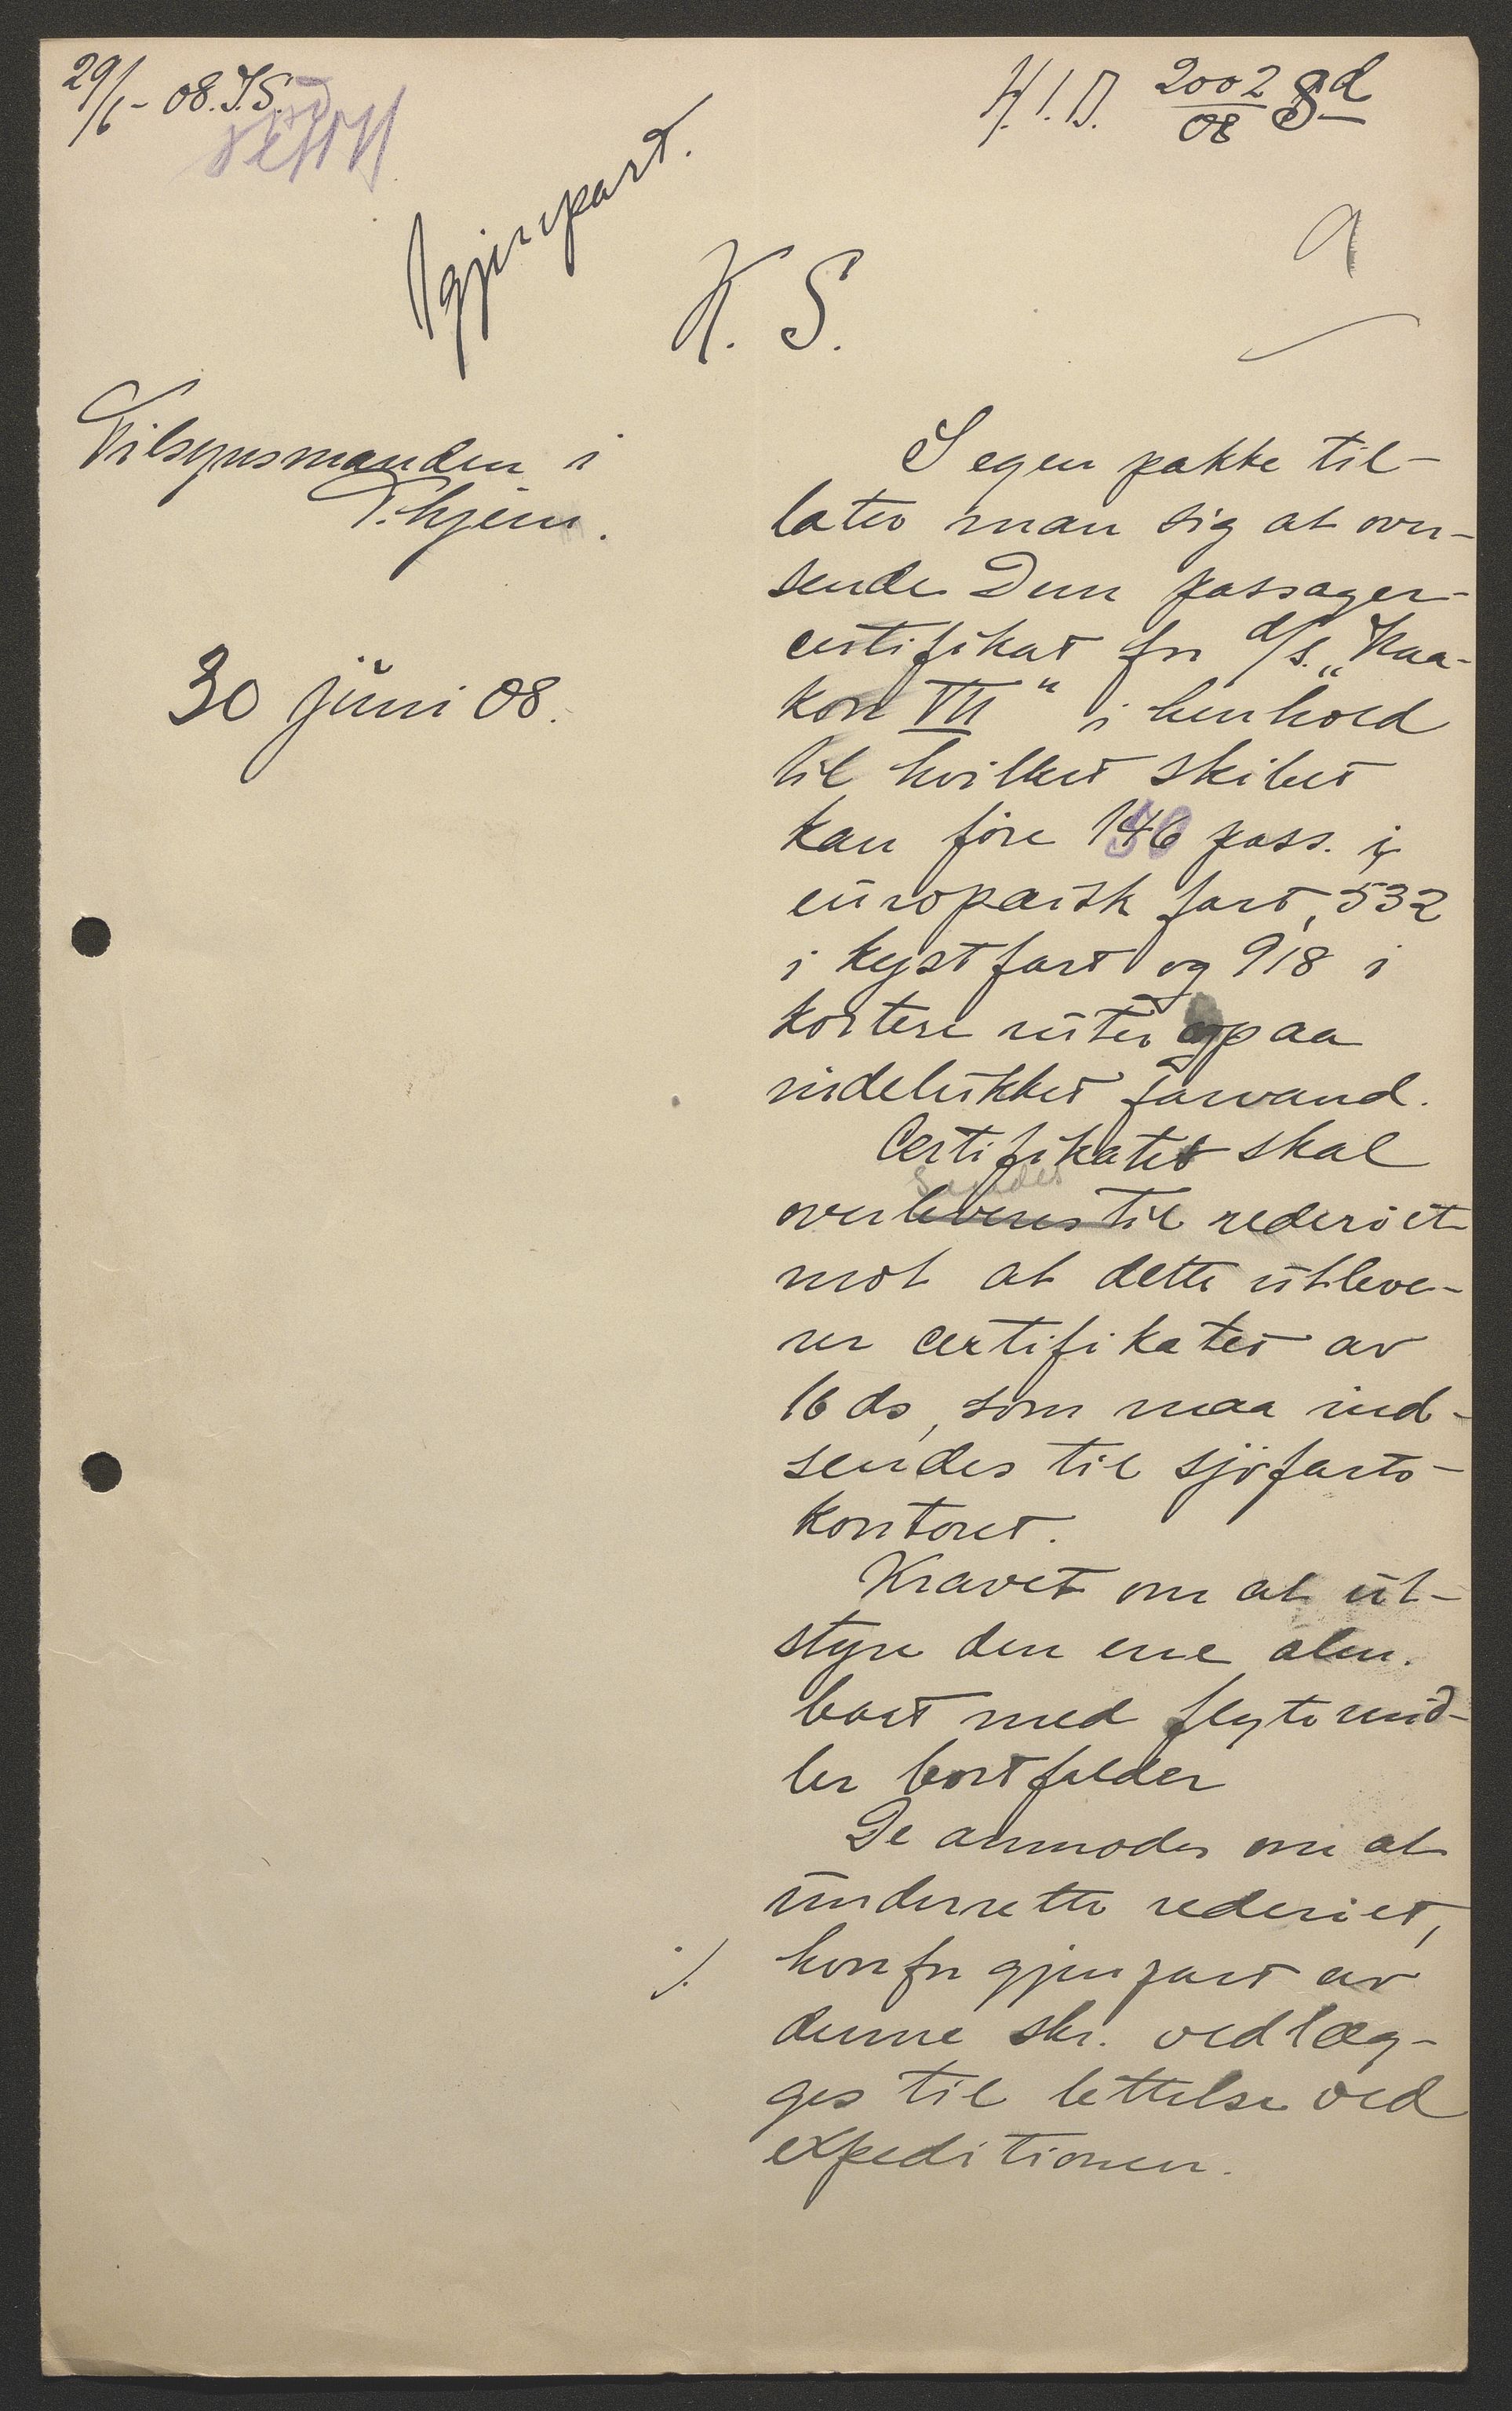 29/6 - 08. J.S.
H.I.D. 2002/08 Sd
1 gjenpart.
K. S.
Tilsynsmanden i
T.hjem.
30 juni 08.
I egen pakke til-
later man sig at over-
sende Dem passager-
certifikat for d/s. „Haa-
kon VII“ i henhold
til hvilket skibet
kan före 146 pass. i
europæisk fart, 532
i kystfart og 918 i
kortere ruter og paa
indelukket farvand.
Certifikatet skal
sendes
overleveres til rederiet
mot at dette utleve-
rer certifikatet av
16 ds, som maa ind-
sendes til sjöfarts-
kontoret.
Kravet om at ut-
styre den ene alm.
baat med flytemid-
ler bortfalder
De anmodes om at
underrette rederiet,
hvorfor gjenpart av
denne skr. vedlæg-
ges til lettelse ved
expeditionen.